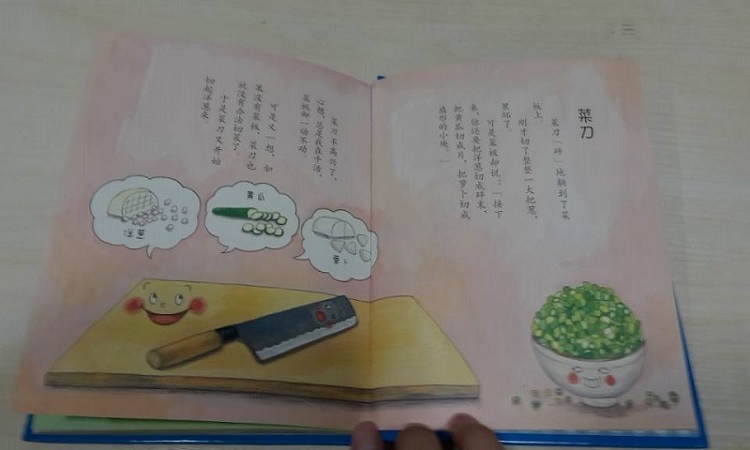 菜刀
菜刀「砰」地躺到了菜
板上。
刚才切了整整一大把葱，
累坏了。
可是菜板却说：「接下
来，你还要把洋葱切成碎末，
把黄瓜切成片，把萝卜切成
扇形的小块。」
菜刀不高兴了，
心想，总是我在干活，
菜板却一动不动。
可是又一想，如
果没有菜板，菜刀也
就没有办法切菜了。
于是菜刀又开始
切起洋葱来。
洋葱
黄瓜
萝卜